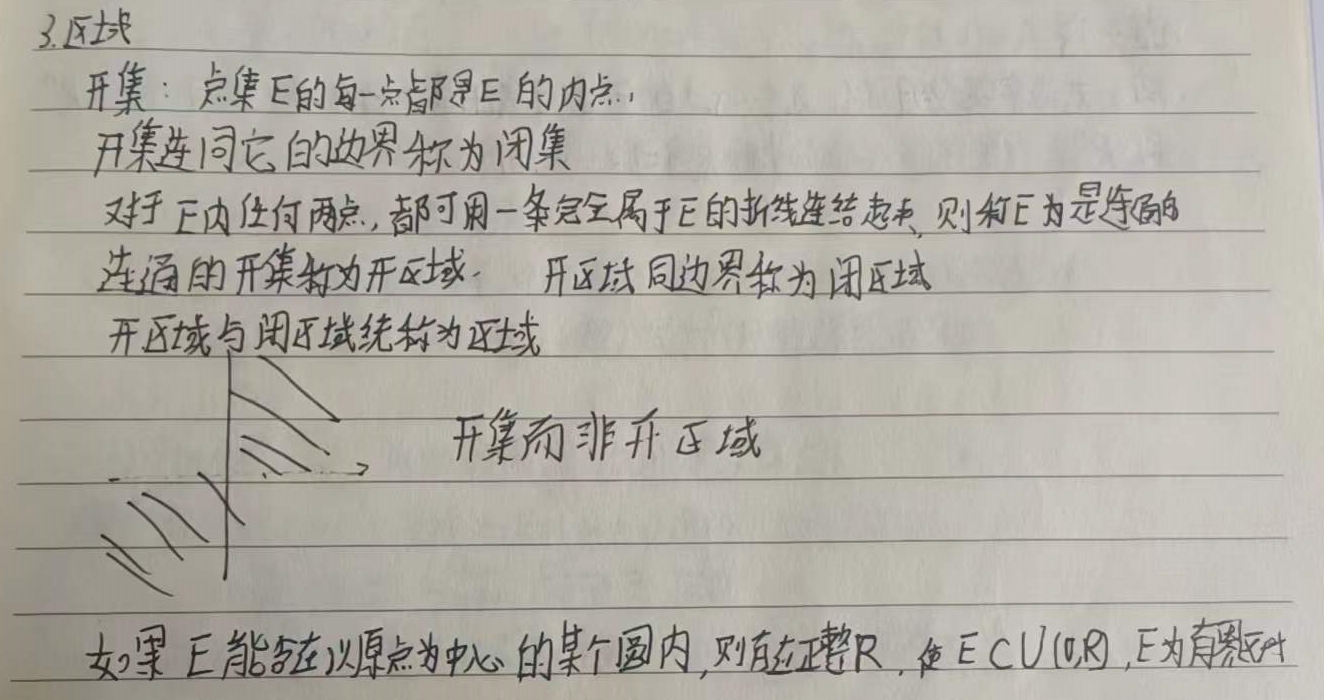 3.区域
开集：点集E的每一点都是E的内点，
开集连同它的边界称为闭集
对于E内任何两点，都可用一条完全属于E的折线连结起来，则称E为是连通的
连通的开集称为开区域. 开区域同边界称为闭区域
开区域与闭区域统称为区域
开集而非开区域
如果E能含在以原点为中心的某个圆内，则存在正整R，使E⊂U(0,R)，E为有界